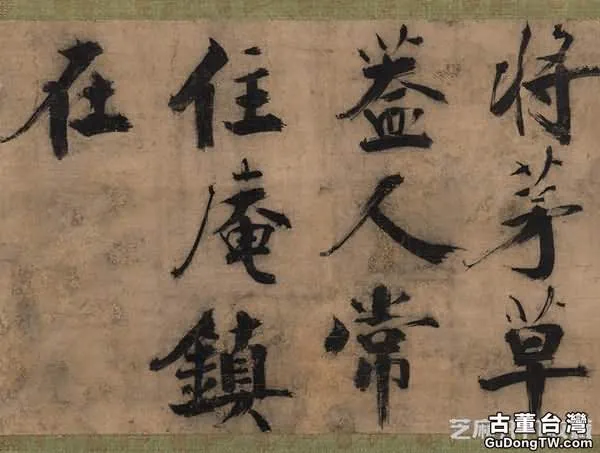 将茅草
蓋人常
住庵鎮
在
古董台灣
GuDongTW.com